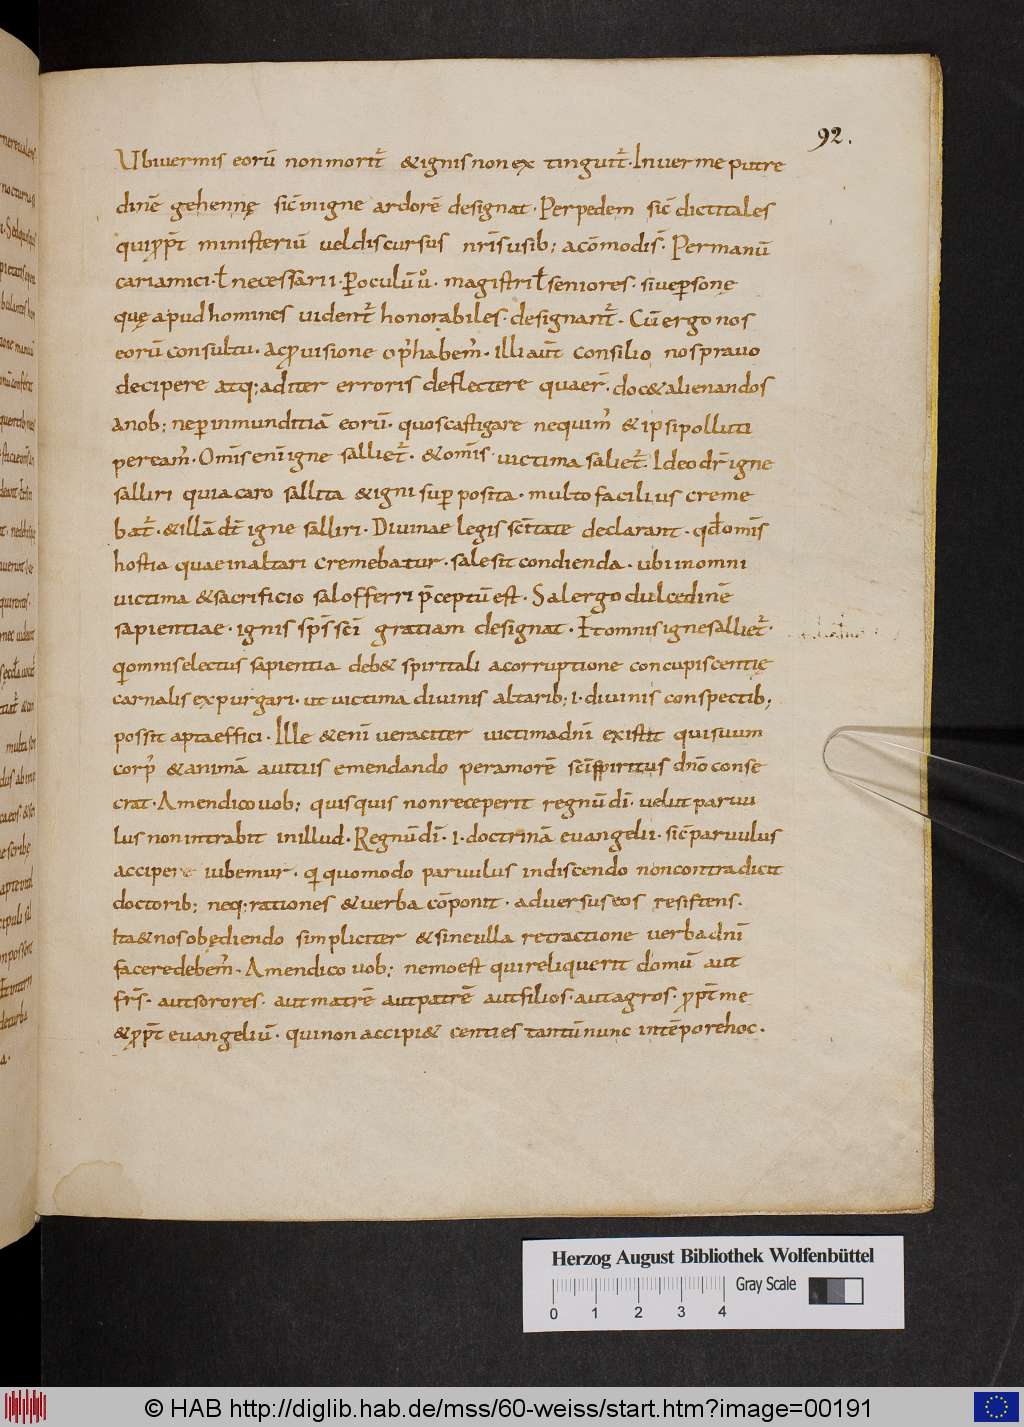 92.
Ubi vermis eorū non moriṫ &ignis non extinguiṫ. In verme putre
dinē gehennę sic̄ in igne ardorē designat. Per pedem sic̄ dictit ales
qui ꝓpt̄ ministeriū vel discursus nr̄is usib; acōmodis. Per manū
cari amici. ł necessarii. Ꝑ oculū ů. magistri ł seniores. sive ꝑsonę
quę apud homines videnṫ honorabiles. designanṫ. Cū ergo nos
eorū consultu. ac ꝓvisione op' habem'. illi aūt consilio nos pravo
decipere atq; ad iter erroris deflectere quaer̄. doc& alienandos
a nob; ne ꝑ inmunditiā eorū. quos castigare nequim' & ipsi polluti
peream'. Omīs enī igne salli&̇. & omīs victima sali&̇. Ideo dr̄ igne
salliri quia caro sallita &igni suꝑposita. multo facilius creme
baṫ. &illā dt̄ igne salliri. Divinae legis scītate declarant. qđ omīs
hostia quae in altari cremebatur. sale sit condienda. ubi in omni
victima &sacrificio sal offerri p̄ceptū est. Sal ergo dulcedinē
sapientiae. ignis sp̄s scī gratiam designat. Et omnis igne salli&̇.
q̇ omnis electus sapientia deb& spiritali a corruptione concupiscentię
carnalis expurgari. ut victima divinis altarib; i. divinis conspectib;
possit apta effici. Ille &enī veraciter victima dn̄i existit qui suum
corp' &animā a vitiis emendando per amorē scī spiritus dn̄o conse
crat. Amen dico vob; quisquis non receperit regnū dī. velut parvu
lus non intrabit in illud. Regnū dī. i. doctrinā evangelii. sic̄ parvulus
accipere iubemur. q̇ quomodo parvulus in discendo non contradicit
doctorib; neq; rationes &verba cōponit. adversus eos resistens.
Ita&nos obędiendo simpliciter &sine ulla retractione verba dn̄i
facere debem'. Amen dico vob; nemo est qui reliquerit domū aut
fr̄s. aut sorores. aut matrē aut patrē aut filios. aut agros. ꝓpt̄ me
&ꝓpt̄ evangeliū. qui non accipi& centies tantū nunc in tēpore hoc.
Herzog August Bibliothek Wolfenbüttel
Gray Scale
0 1 2 3 4
© HAB http://diglib.hab.de/mss/60-weiss/start.htm?image=00191